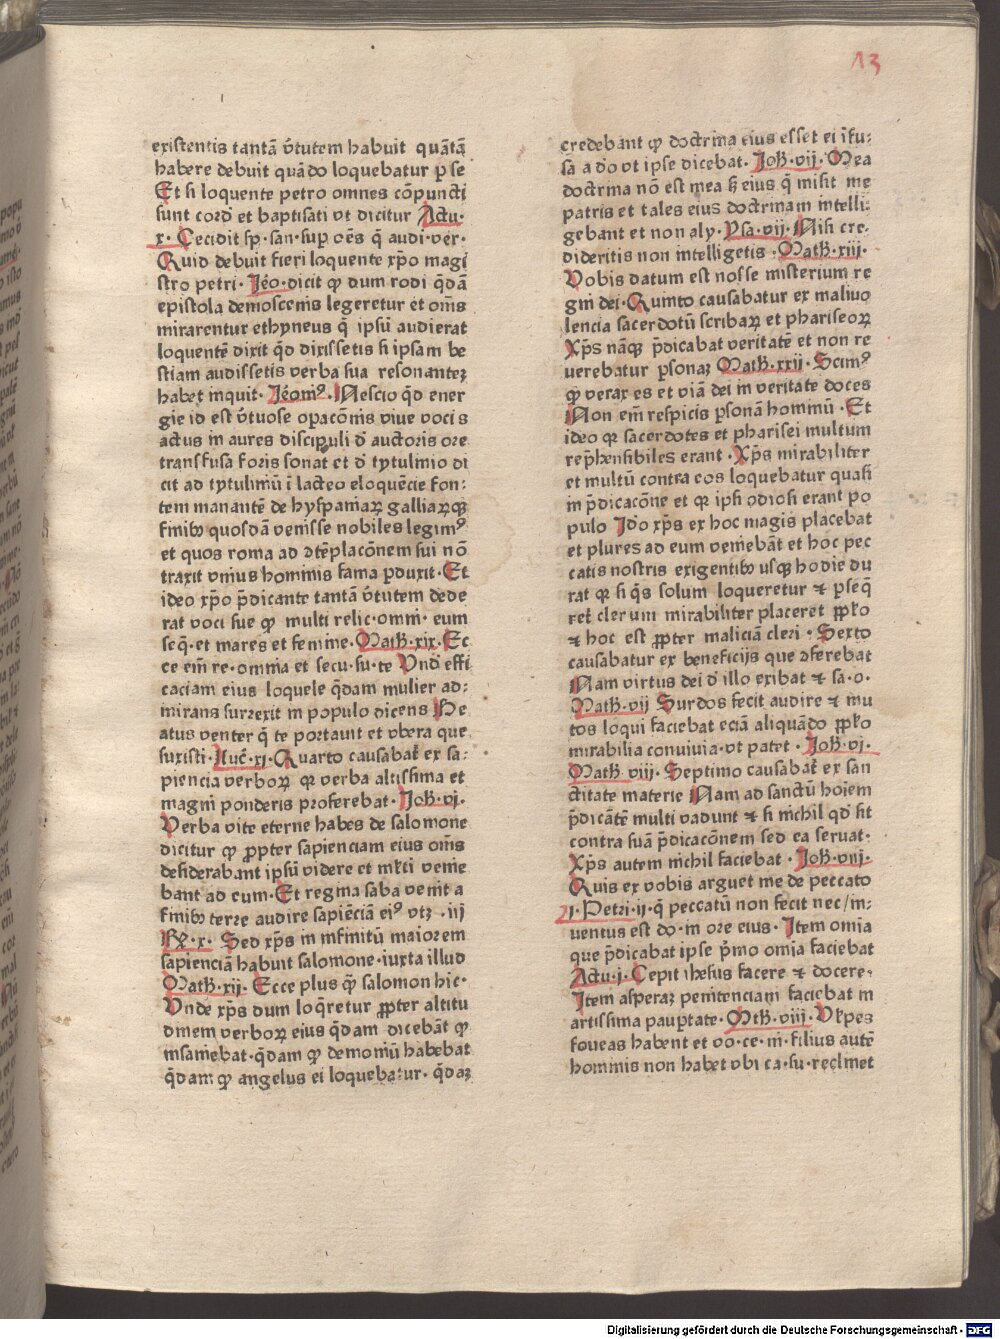 13
existentis tantā v̄tutem habuit quātā
habere debuit quādo loquebatur p̱ se
Et si loquente petro omnes cōpuncti
sunt cord̓ et baptisati vt dicitur Actu·
x· Cecidit sp̄·san·sup̱ oēs q̄ audi·ver·
Quid debuit fieri loquente xp̄o magi
stro petri· Jēo·dicit qꝫ dum rodi q̄dā
epistola demoscenis legeretur et om̄s
mirarentur ethyneus q̄ ipsū audierat
loquentē dixit qd̄ dixissetis si ipsam be
stiam audissetis verba sua resonanteꝫ
habet inquit· Jēomꝰ· Nescio qd̄ ener
gie id est v̄tuose op̱acōnis viue vocis
actus in aures discipuli d̓ auctoris ore
transfusa foris sonat et d̓ tytulinio di
cit ad tytulinū ī lacteo eloquēcie fon⸗
tem manantē de hyspaniaꝝ galliaꝝqꝫ
finibꝫ quosdā venisse nobiles legimꝰ
et quos roma ad ꝯtēplacōnem sui nō
traxit vnius hominis fama p̱duxit· Et
ideo xp̄o p̄dicante tantā v̄tutem dede
rat voci sue qꝫ multi relic·omni· eum
seq̄·et mares et femine· Math̄·xix· Ec
ce em̄ re·omnia et secu·su·te Vnd̄ effi
caciam eius loquele q̄dam mulier ad⸗
mirans surrexit in populo dicens Be
atus venter q̄ te portauit et vbera que
suxisti· Luc̄·xi· Quarto causabat̄ ex sa⸗
piencia verboꝝ qꝛ verba altissima et
magni ponderis proferebat· Joh̄·vi·
Verba vite eterne habes de salomone
dicitur qꝫ ꝓpter sapienciam eius om̄s
desiderabant ipsū videre et ml̄ti venie
bant ad eum· Et regina saba venit a
finibꝫ terre audire sapiēciā eiꝰ vtꝫ · iij
Rē·x· Sed xp̄s in infinitū maiorem
sapienciā habuit salomone·iuxta illud
Math̄·xij· Ecce plus qꝫ salomon hic·
Vnde xp̄s dum loq̄retur ꝓpter altitu
dinem verboꝝ eius q̄dam dicebāt qꝫ
insaniebat·q̄dam qꝫ demoniū habebat
q̄dam qꝫ angelus ei loquebatur· q̄daꝫ
credebant qꝫ doctrina eius esset ei īfu⸗
sa a dō vt ipse dicebat· Joh̄·vij· Mea
doctrina nō est mea sꝫ eius q̄ misit me
patris et tales eius doctrinam intelli⸗
gebant et non aly· Ysa·vij· Nisi cre⸗
dideritis non intelligetis · Math̄·xiij·
Vobis datum est nosse misterium re
gni dei· Quinto causabatur ex maliuo
lencia sacerdotū scribaꝝ et phariseoꝝ
Xp̄s nāqꝫ p̄dicabat veritatē et non re
uerebatur p̱sonaꝫ Math̄·xxij· Scimꝰ
qꝫ verax es et viā dei in veritate doces
Non em̄ respicis p̱sonā hominū· Et
ideo qꝛ sacerdotes et pharisei multum
rep̄hensibiles erant · Xp̄s mirabiliter
et multū contra eos loquebatur quasi
in p̄dicacōne et qꝛ ipsi odiosi erant po
pulo Jdō xp̄s ex hoc magis placebat
et plures ad eum veniebāt et hoc pec
catis nostris exigentibꝫ usqꝫ hodie du
rat qꝛ si q̄s solum loqueretur ⁊ p̱seq̄
ret̄ clerum mirabiliter placeret ꝓpl̄o
⁊ hoc est ꝓpter maliciā cleri · Sexto
causabatur ex beneficijs que ꝯferebat
Nam virtus dei d̓ illo exibat ⁊ sa·o·
Math̄·vij Surdos fecit audire ⁊ mu
tos loqui faciebat eciā aliquādo ꝓpl̄o
mirabilia conuiuia·vt patet · Joh̄·vj·
Math̄ viij· Septimo causabat̄ ex san
ctitate materie Nam ad sanctū hoīem
p̄dicātē multi vadunt ⁊ si nichil qd̄ sit
contra suā p̄dicacōnem sed ea seruat·
Xp̄s autem nichil faciebat · Joh̄·viij·
Quis ex vobis arguet me de peccato
1· Petri·ij·q̄ peccatū non fecit nec in⸗
uentus est do·in ore eius· Jtem omīa
que p̄dicabat ipse p̄mo omīa faciebat
Actu·j· Cepit ihesus facere ⁊ docere·
Jtem asperaꝫ penitenciam faciebat in
artissima paup̱tate· Mth̄·viij· Vl̄pes
foueas habent et vo·ce·ni·filius autē
hominis non habet vbi ca·su·reclinet
Digitalisierung gefördert durch die Deutsche Forschungsgemeinschaft - DFG